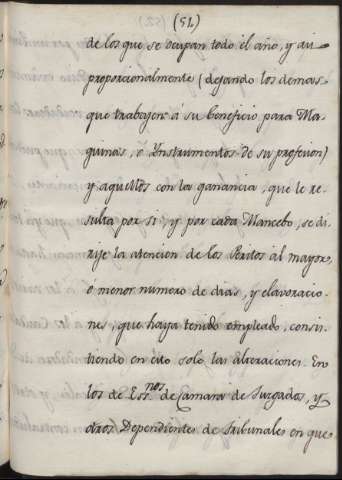 (51.)
de los que se ocupan todo el año, y asi
proporcionalmente (dejando los demas
que trabajen á su beneficio para Ma-
quinas, o Ynstrumentos de su profesion)
y aquellos con la ganancia, que le re-
sulta por si, y por cada Mancebo, se di-
rije la atencion de los Peritos al mayor,
o menor numero de dias, y elavoracio-
nes, que haya tenido empleado, consis-
tiendo en esto solo las alteraciones. En
los de Ess.nos de Camara de Jurgados, y
otros Dependientes de Tribunales en que